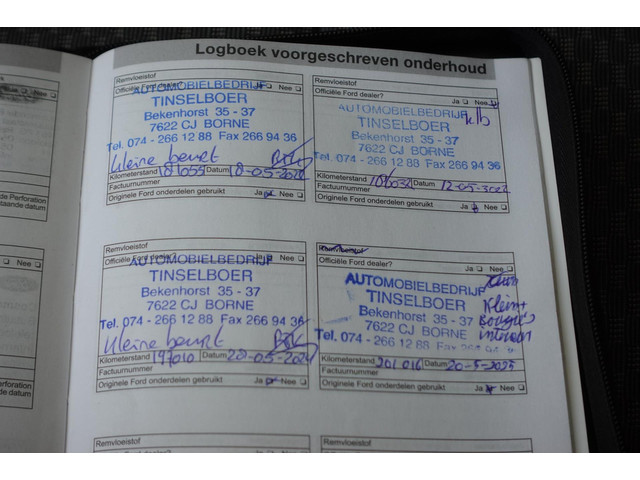 Logboek voorgeschreven onderhoud
Remvloeistof
Officiële Ford dealer? Ja Nee
AUTOMOBIELBEDRIJF
TINSELBOER
Bekenhorst 35 - 37
7622 CJ BORNE
Tel. 074 - 266 12 88 Fax 266 94 36
kleine beurt
Kilometerstand Datum
Factuurnummer
Originele Ford onderdelen gebruikt Ja Nee
Remvloeistof
Officiële Ford dealer? Ja Nee
AUTOMOBIELBEDRIJF
TINSELBOER
Bekenhorst 35 - 37
7622 CJ BORNE
Tel. 074 - 266 12 88 Fax 266 94 36
Kilometerstand Datum
Factuurnummer
Originele Ford onderdelen gebruikt Ja Nee
Remvloeistof
Officiële Ford dealer? Ja Nee
AUTOMOBIELBEDRIJF
TINSELBOER
Bekenhorst 35 - 37
7622 CJ BORNE
Tel. 074 - 266 12 88 Fax 266 94 36
kleine beurt
Kilometerstand 197010 Datum
Factuurnummer
Originele Ford onderdelen gebruikt Ja Nee
Remvloeistof
Officiële Ford dealer? Ja Nee
AUTOMOBIELBEDRIJF
TINSELBOER
Bekenhorst 35 - 37
7622 CJ BORNE
Tel. 074 - 266 12 88 Fax 266 94
Kilometerstand 201016 Datum 20-5-2025
Factuurnummer
Originele Ford onderdelen gebruikt Ja Nee
Remvloeistof
Officiële Ford dealer? Ja Nee
Remvloeistof
Officiële Ford dealer? Ja Nee